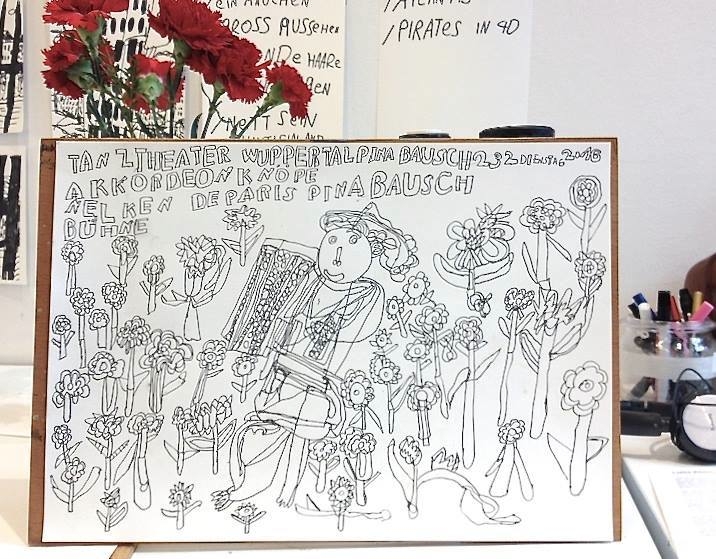 EIN RAUCHEN
GROSS AUSSEHEN
NDE HAARE
GEN
NETT SEIN
/ATLANTIS
/PIRATES IN 4D
TANZTHEATER WUPPERTAL PINA BAUSCH 232 DIENSTAG 2016
AKKORDEON KNÖPE
NELKEN DE PARIS PINA BAUSCH
BÜHNE